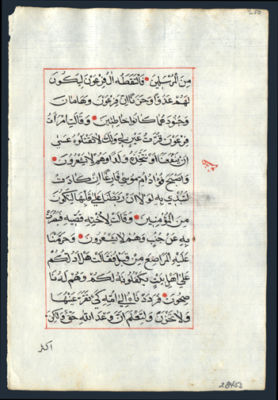 مِنَ الْمُرْسَلِينَ فَالْتَقَطَهُ آلُ فِرْعَوْنَ لِيَكُونَ
لَهُمْ عَدُوًّا وَحَزَنًا إِنَّ فِرْعَوْنَ وَهَامَانَ
وَجُنُودَهُمَا كَانُوا خَاطِئِينَ وَقَالَتِ امْرَأَتُ
فِرْعَوْنَ قُرَّتُ عَيْنٍ لِي وَلَكَ لَا تَقْتُلُوهُ عَسَى
أَنْ يَنْفَعَنَا أَوْ نَتَّخِذَهُ وَلَدًا وَهُمْ لَا يَشْعُرُونَ
وَأَصْبَحَ فُؤَادُ أُمِّ مُوسَى فَارِغًا إِنْ كَادَتْ
لَتُبْدِي بِهِ لَوْلَا أَنْ رَبَطْنَا عَلَى قَلْبِهَا لِتَكُونَ
مِنَ الْمُؤْمِنِينَ وَقَالَتْ لِأُخْتِهِ قُصِّيهِ فَبَصُرَتْ
بِهِ عَنْ جُنُبٍ وَهُمْ لَا يَشْعُرُونَ وَحَرَّمْنَا
عَلَيْهِ الْمَرَاضِعَ مِنْ قَبْلُ فَقَالَتْ هَلْ أَدُلُّكُمْ
عَلَى أَهْلِ بَيْتٍ يَكْفُلُونَهُ لَكُمْ وَهُمْ لَهُ نَا
صِحُونَ فَرَدَدْنَاهُ إِلَى أُمِّهِ كَيْ تَقَرَّ عَيْنُهَا
وَلَا تَحْزَنَ وَلِتَعْلَمَ أَنَّ وَعْدَ اللَّهِ حَقٌّ وَلَكِنَّ